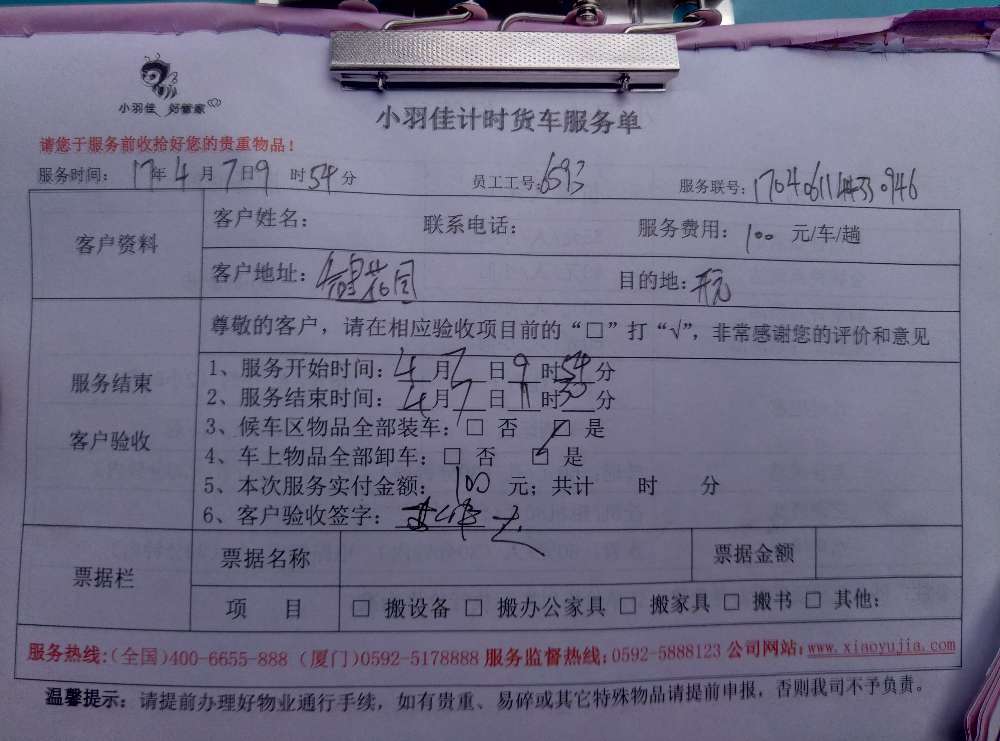 小羽佳 好管家
小羽佳计时货车服务单
请您于服务前收拾好您的贵重物品！
服务时间： 17年 4 月 7 日 9 时 54 分 员工工号: 6593 服务联号:
客户资料
客户姓名： 联系电话： 服务费用： 100 元/车/趟
客户地址： 花园 目的地:
服务结束
客户验收
尊敬的客户，请在相应验收项目前的“□”打“√”，非常感谢您的评价和意见
1、服务开始时间: 4 月 7 日 9 时 54 分
2、服务结束时间: 4 月 7 日 11 时 30 分
3、候车区物品全部装车: □ 否 □ 是
4、车上物品全部卸车: □ 否 □ 是
5、本次服务实付金额: 100 元; 共计 时 分
6、客户验收签字:
票据栏
票据名称 票据金额
项 目 □ 搬设备 □ 搬办公家具 □ 搬家具 □ 搬书 □ 其他:
服务热线:(全国)400-6655-888 (厦门)0592-5178888 服务监督热线:0592-5888123 公司网站:www.xiaoyujia.com
温馨提示：请提前办理好物业通行手续，如有贵重、易碎或其它特殊物品请提前申报，否则我司不予负责。